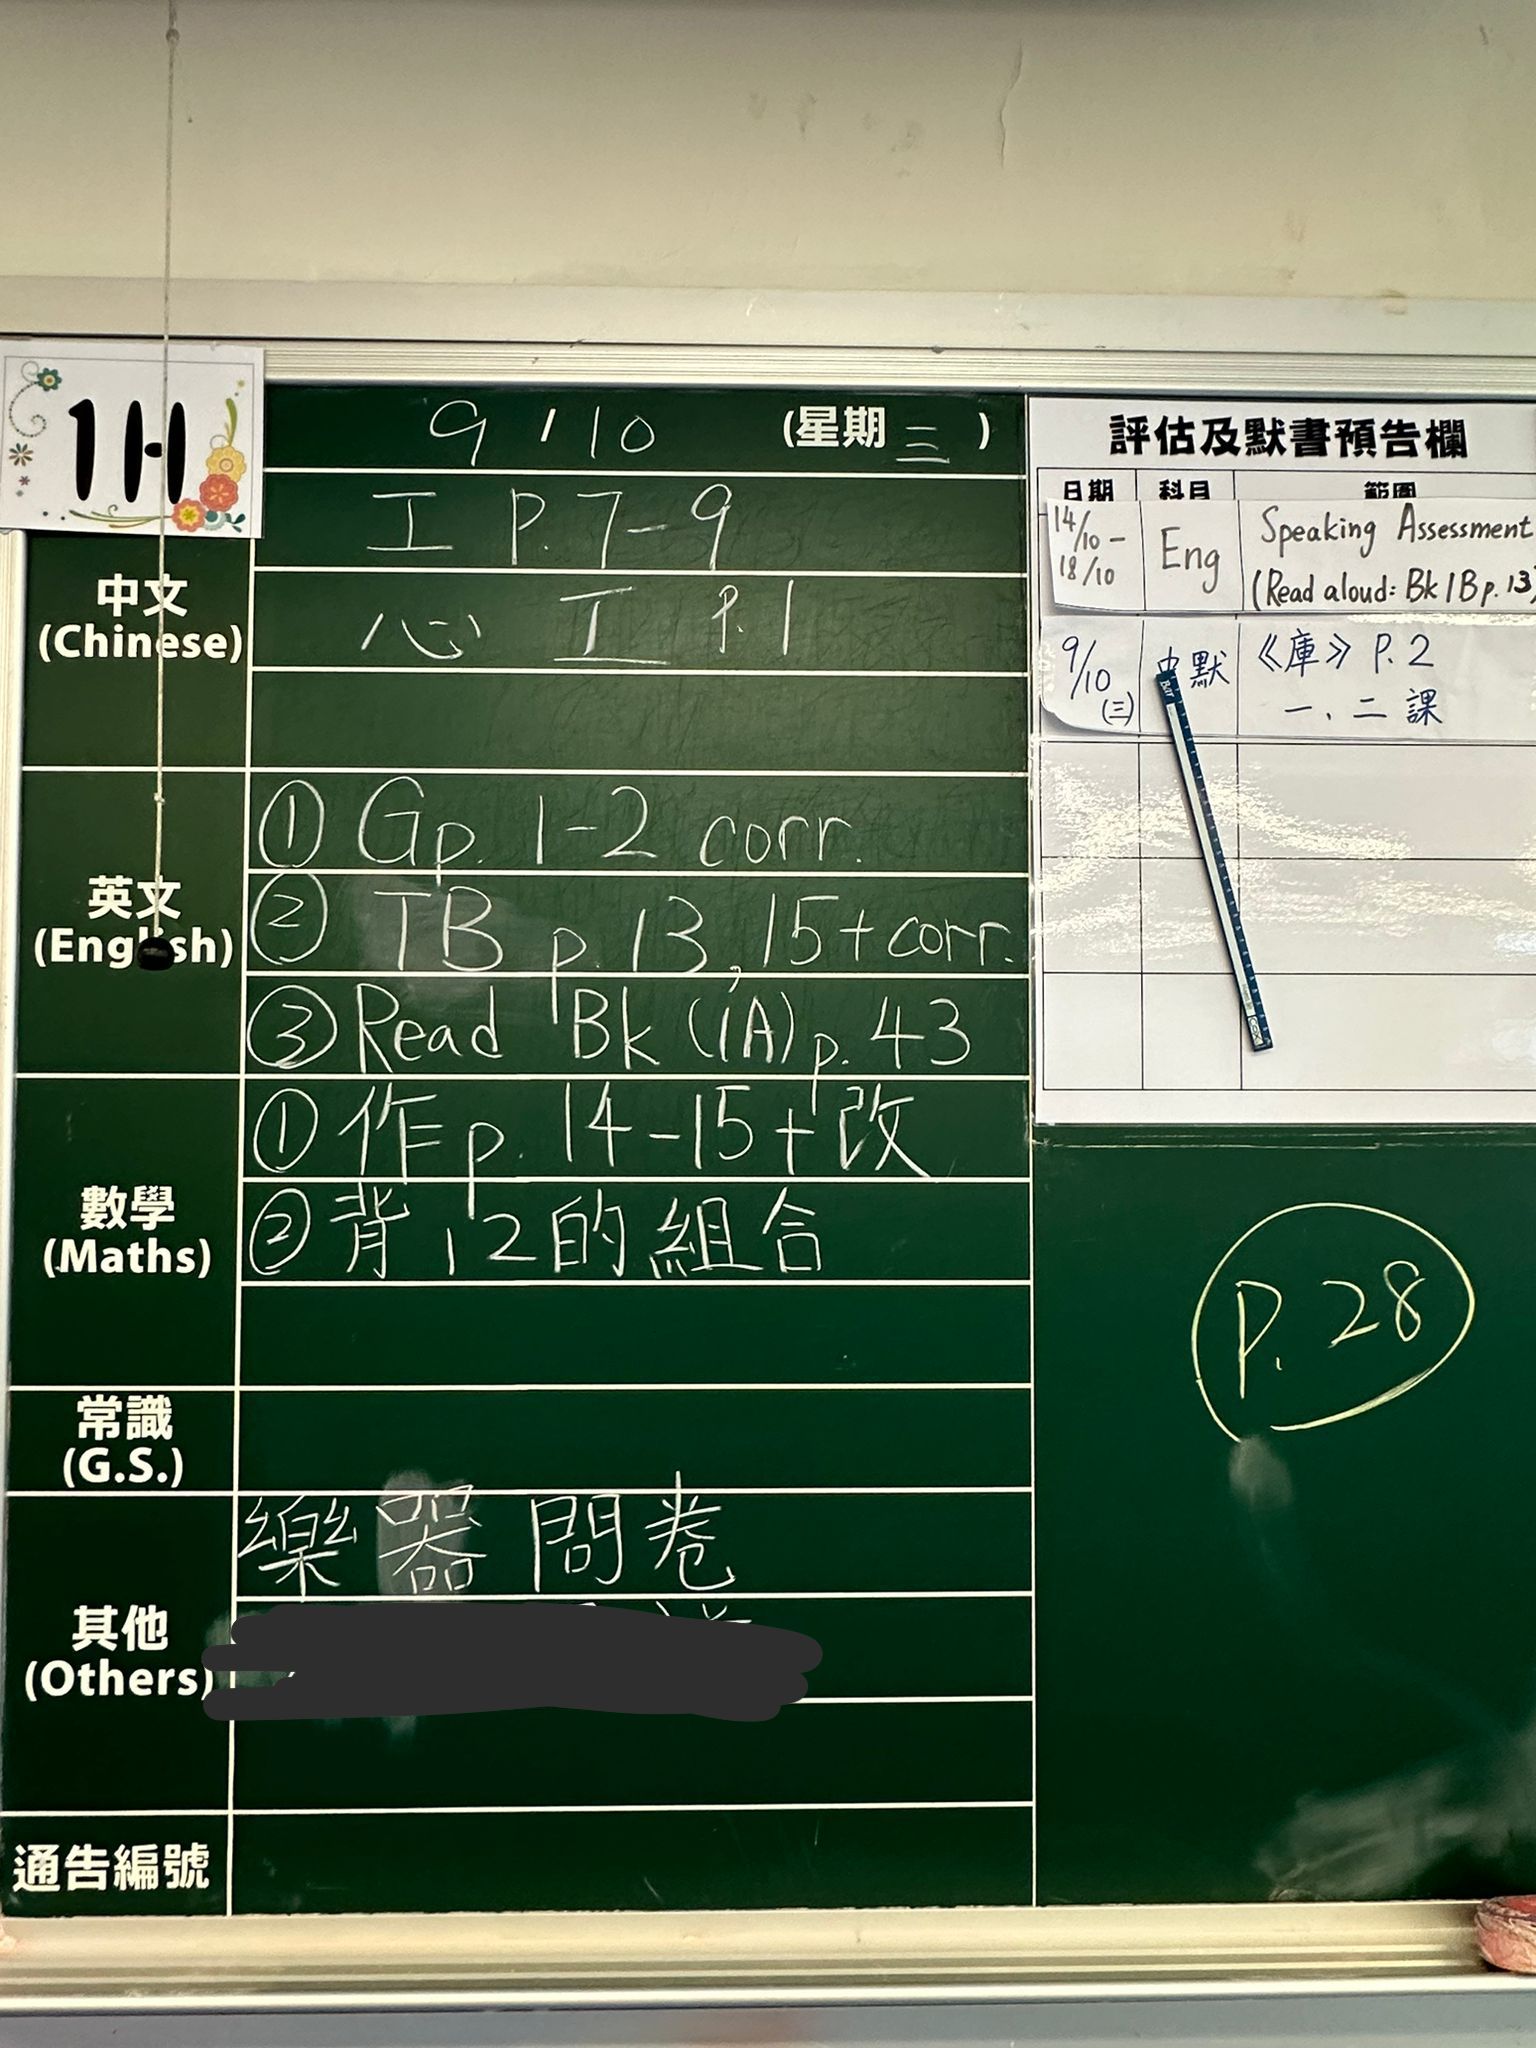 1H
9 / 10 (星期三)
中文
(Chinese)
工 P.7-9
心 工 P.1
英文
(English)
① Gp. 1-2 corr.
② TB p. 13, 15 + corr.
③ Read Bk (1A) p. 43
數學
(Maths)
① 作 p. 14-15 + 改
② 背 12 的組合
常識
(G.S.)
其他
(Others)
樂器問卷
通告編號
評估及默書預告欄
日期 科目 範圍
14/10 - 18/10 Eng Speaking Assessment
(Read aloud: Bk 1B p. 13)
9/10 (三) 中默 《庫》 P. 2
一、二課
P. 28